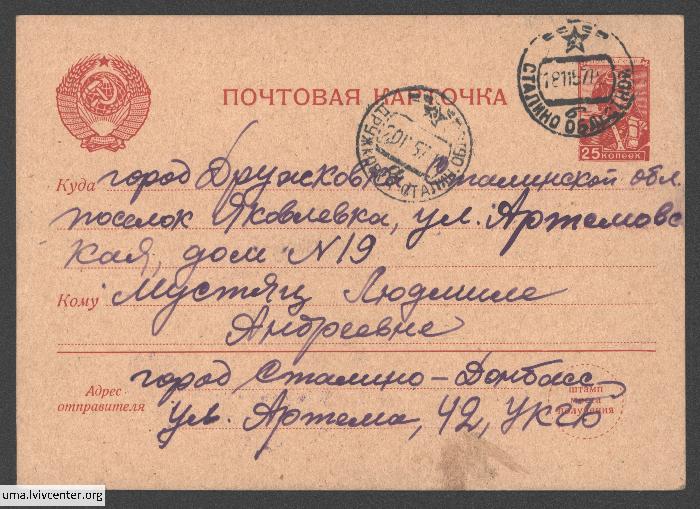 ПОЧТОВАЯ КАРТОЧКА
25 КОПЕЕК
Куда город Дружковка Сталинской обл.
поселок Яковлевка, ул. Артемовс
кая, дом N19
Кому Мустяц Людмиле
Андреевне
Адрес отправителя
город Сталино-Донбасс
ул. Артема, 42, УКГБ
штамп
места
получения
uma.lvivcenter.org